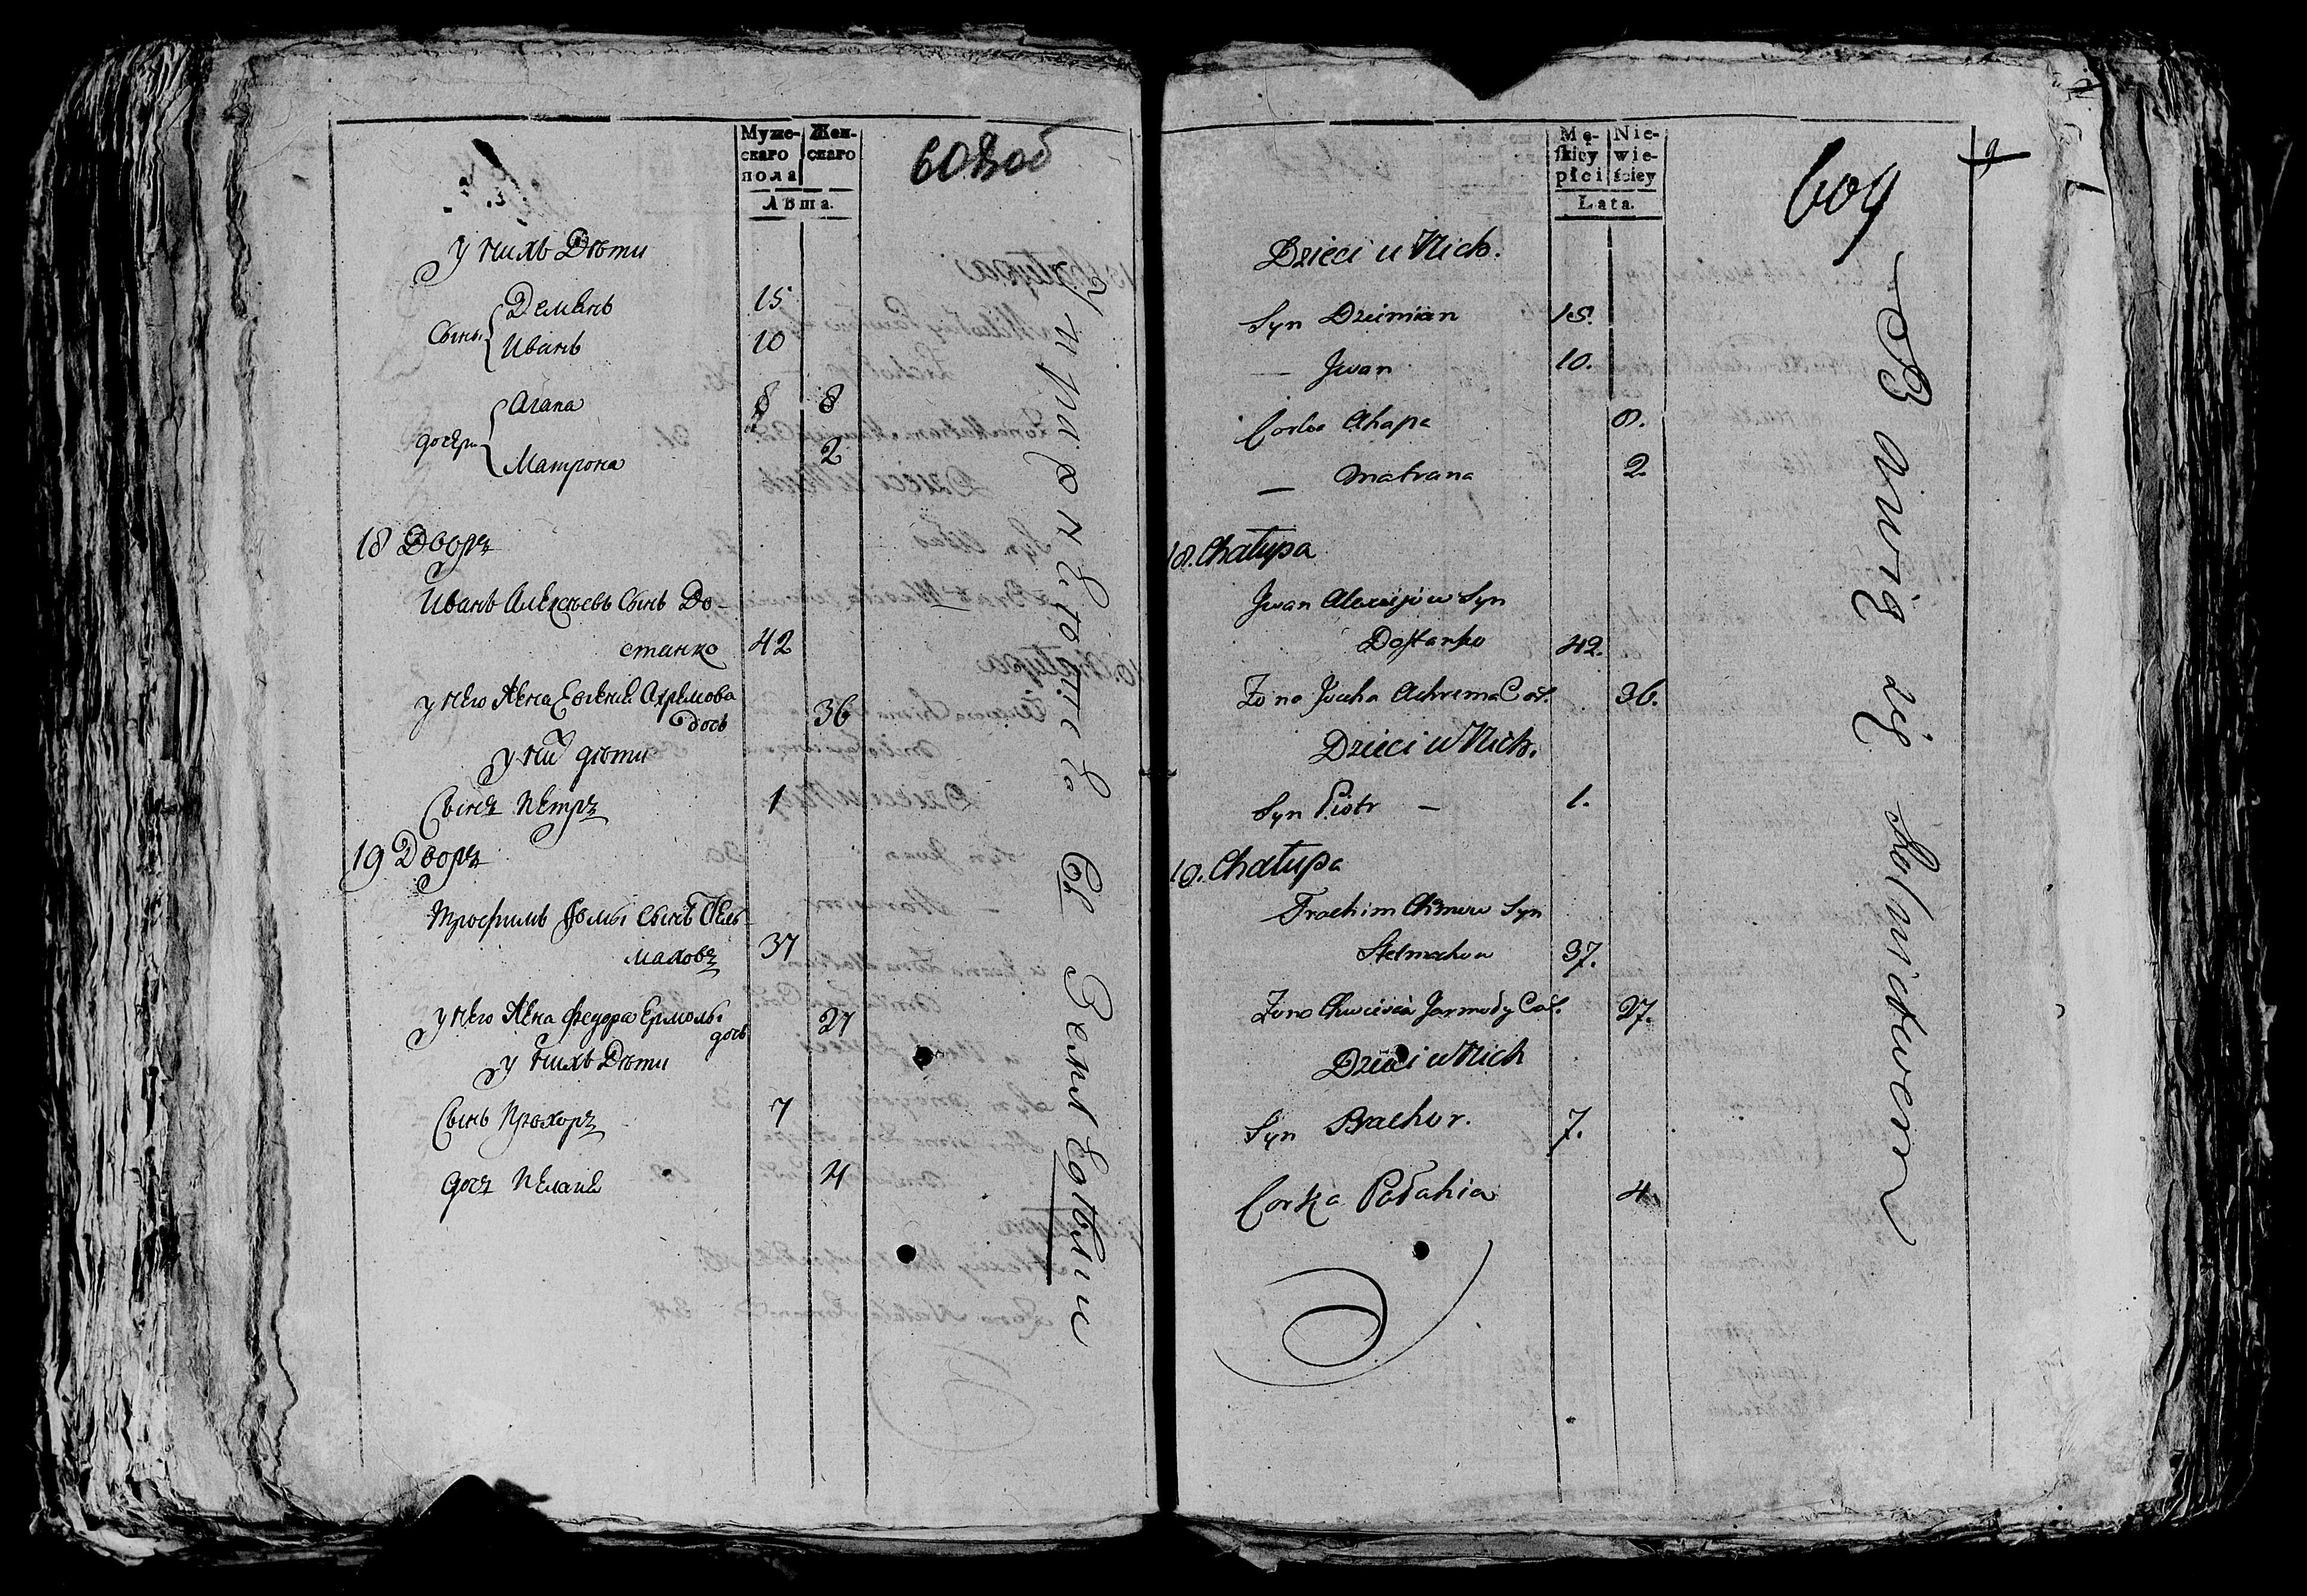 608 об
Муже-
скаго
пола
Жен-
скаго
Лѣта.
у нихъ Дѣти
Сыны
Демянъ 15
Иванъ 10
дочери
Агапа 8 8
Матрона 2
18 Дворъ
Иванъ Алексѣевъ Сынъ До-
станко 42
у него Жена Евгения Ахремова
дочь 36
у них дѣти
Сынъ Петръ 1
19 Дворъ
Трофимъ Фомы Сынъ Стель-
маховъ 37
у него Жена Федора Ермолы
дочь 27
у нихъ Дѣти
Сынъ Прохоръ 7
дочь Пелагия 4
609
Mę-
skiey
płci
Nie-
wie-
ściey
Lata.
Dzieci u Nich.
Syn Dzimian 15.
— Jwan 10.
Corka Ahapa 8.
— Matrana 2.
18. Chałupa
Jwan Alexiejow Syn
Dostanko 42.
Zona Jouha Achrema Cor. 36.
Dzieci u Nich.
Syn Piotr — 1.
19. Chałupa
Trachim Chomow Syn
Stelmachow 37.
Zona Chwiesia Jarmoły Cor. 27.
Dzieci u Nich
Syn Prachor. 7.
Corka Pałahia 4.